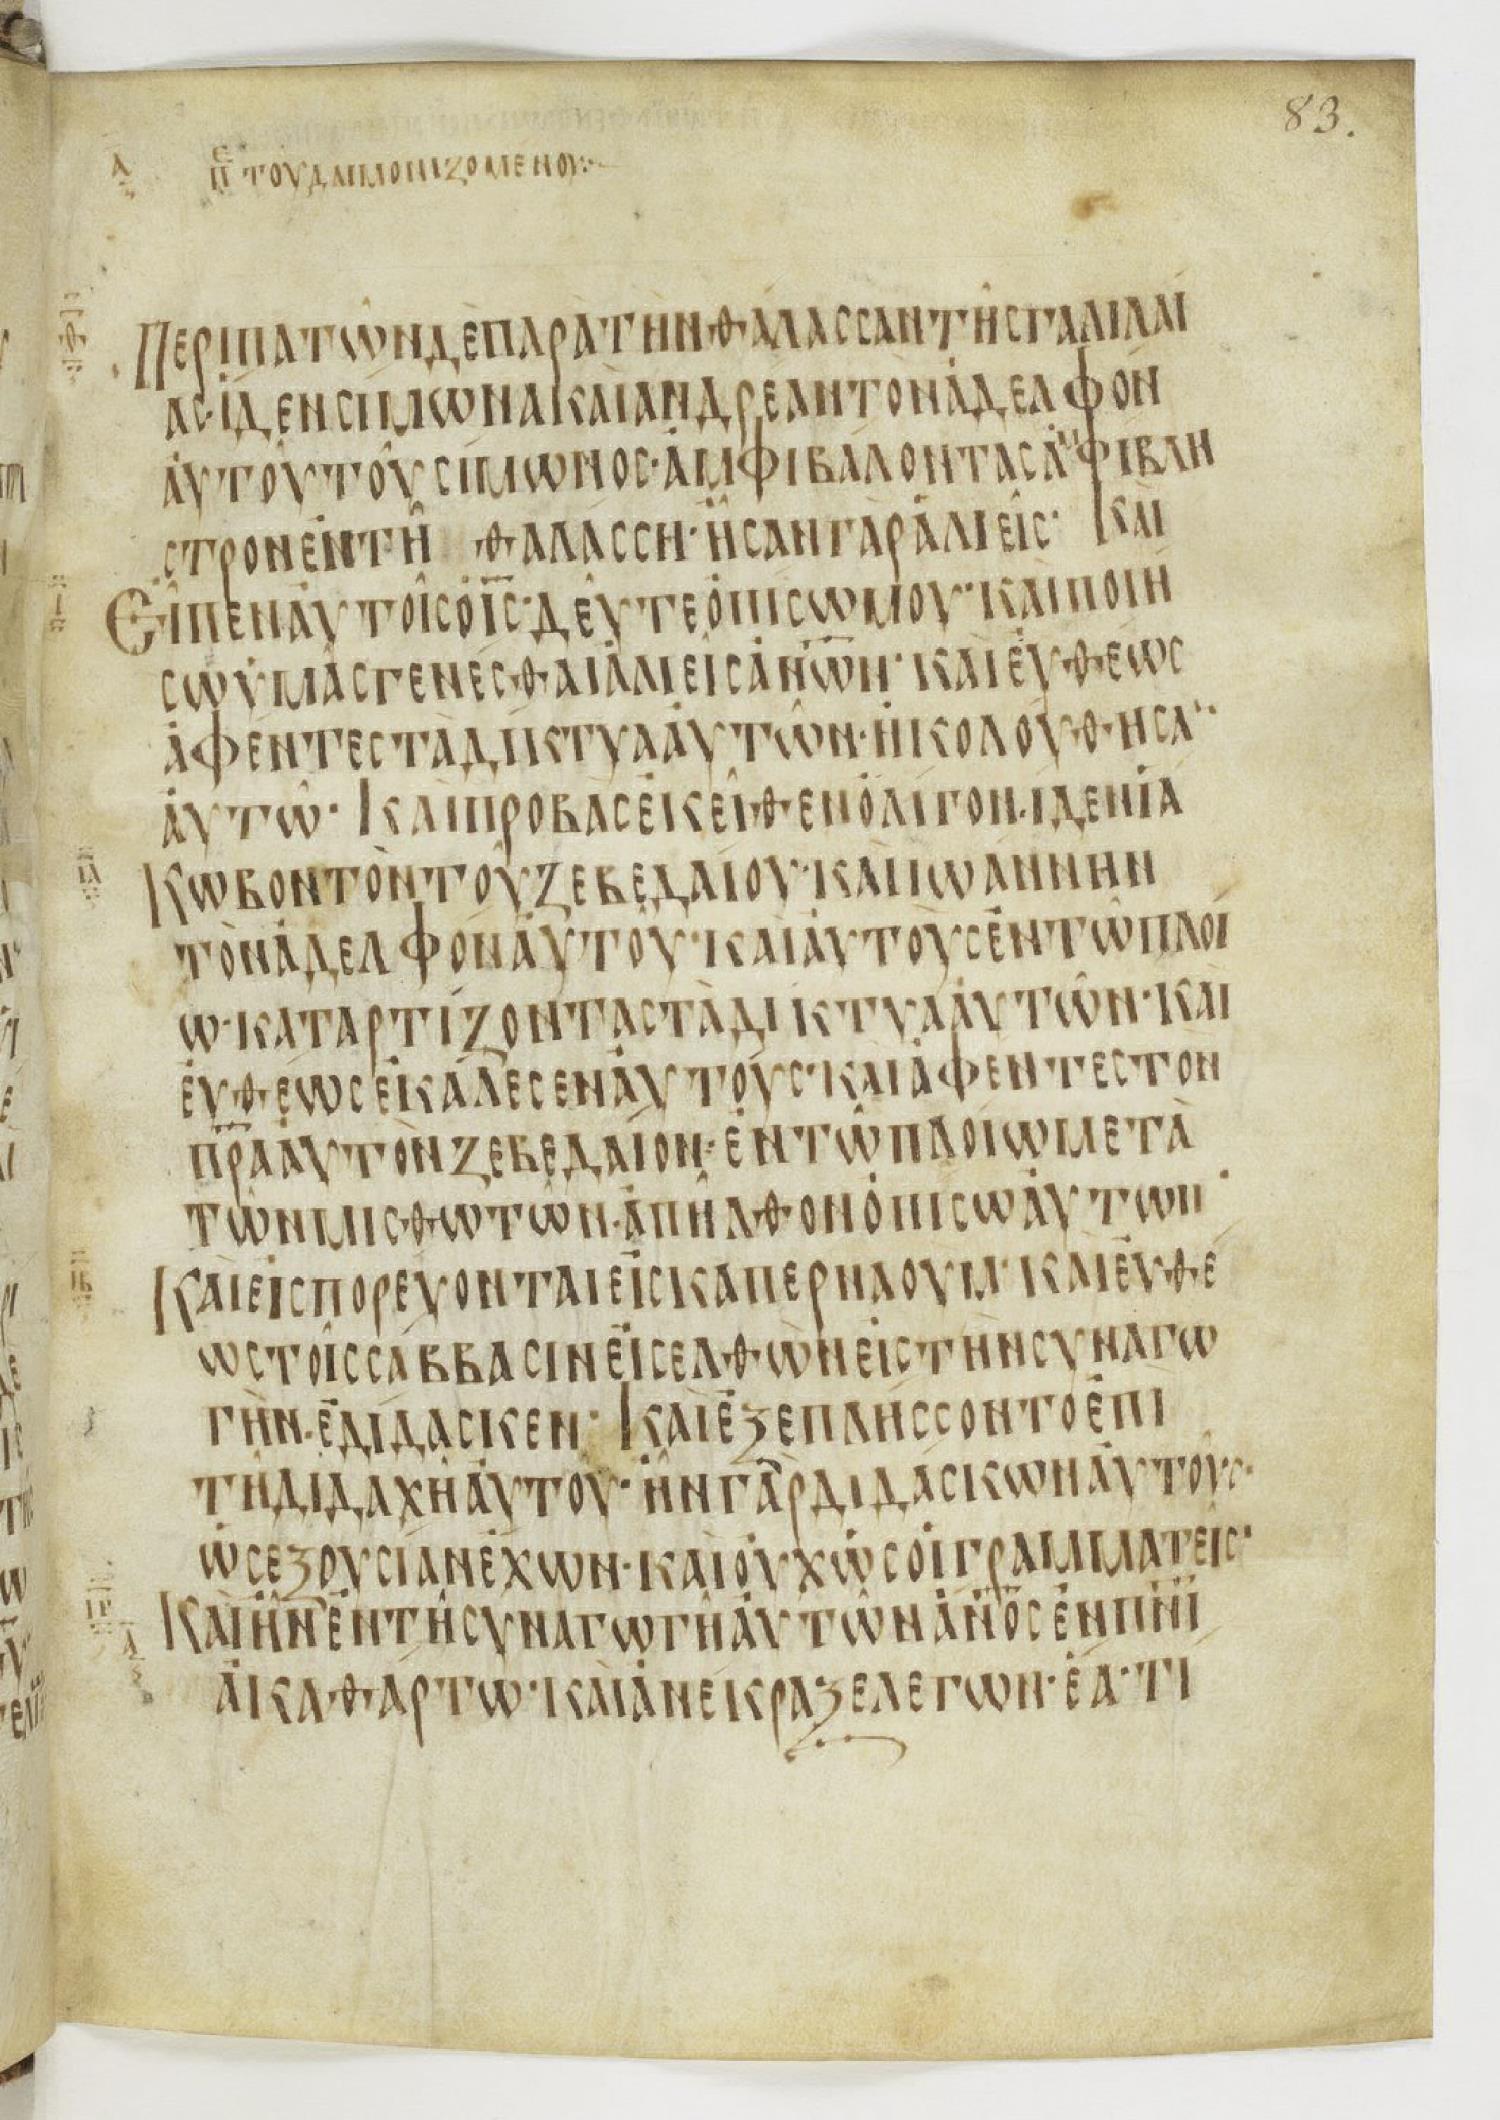 83.
Α ΠΕ ΤΟΥ ΔΑΙΜΟΝΙΖΟΜΕΝΟΥ:~
Θ ΠΕΡΙΠΑΤῶΝ ΔΕ ΠΑΡΑ ΤΗΝ ΘΑΛΑΣΣΑΝ ΤῆΣ ΓΑΛΙΛΑΙ
ΑΣ· ἰΔΕΝ ΣΙΜΩΝΑ ΚΑΙ ΑΝΔΡΕΑΝ ΤΟΝ ἀΔΕΛΦΟΝ
ἀΥΤΟῦ ΤΟῦ ΣΙΜΩΝΟΣ· ἀΜΦΙΒΑΛΟΝΤΑΣ ἀΜΦΙΒΛΗ
ΣΤΡΟΝ ἐΝ Τῆ ΘΑΛΑΣΣΗ· ἦΣΑΝ ΓΑΡ ἁΛΙΕῖΣ· ΚΑΙ
Ι ΕἶΠΕΝ ἀΥΤΟῖΣ Ὁ ΙΣ· ΔΕῦΤΕ ὀΠΙΣΩ ΜΟΥ· ΚΑΙ ΠΟΙΗ
ΣΩ ὑΜᾶΣ ΓΕΝΕΣΘΑΙ ἁΛΙΕῖΣ ἀΝῶΝ· ΚΑΙ ἐΥΘΕΩΣ
ἀΦΕΝΤΕΣ ΤΑ ΔΙΚΤΥΑ ἀΥΤῶΝ· ἠΚΟΛΟΥΘΗΣΑ
ἀΥΤῶ· ΚΑΙ ΠΡΟΒΑΣ ἐΚΕῖΘΕΝ ὀΛΙΓΟΝ· ἰΔΕΝ ἰΑ
ΙΑ ΚΩΒΟΝ ΤΟΝ ΤΟῦ ΖΕΒΕΔΑΙΟΥ· ΚΑΙ ἰΩΑΝΝΗΝ
ΤΟΝ ἀΔΕΛΦΟΝ ἀΥΤΟῦ· ΚΑΙ ἀΥΤΟΥΣ ἐΝ Τῶ ΠΛΟΙ
Ω· ΚΑΤΑΡΤΙΖΟΝΤΑΣ ΤΑ ΔΙΚΤΥΑ ἀΥΤῶΝ· ΚΑΙ
ἐΥΘΕΩΣ ἐΚΑΛΕΣΕΝ ἀΥΤΟΥΣ· ΚΑΙ ἀΦΕΝΤΕΣ ΤΟΝ
ΠΡΑ ἀΥΤΟΝ ΖΕΒΕΔΑΙΟΝ· ἐΝ Τῶ ΠΛΟΙΩ ΜΕΤΑ
ΤῶΝ ΜΙΣΘΩΤῶΝ· ἀΠῆΛΘΟΝ ὀΠΙΣΩ ἀΥΤΩΝ·
ΙΒ ΚΑΙ ΕἰΣΠΟΡΕΥΟΝΤΑΙ ΕἰΣ ΚΑΠΕΡΝΑΟΥΜ· ΚΑΙ ἐΥΘΕ
ΩΣ ΤΟῖΣ ΣΑΒΒΑΣΙΝ ΕἰΣΕΛΘΩΝ ΕἰΣ ΤΗΝ ΣΥΝΑΓΩ
ΓΗΝ· ἐΔΙΔΑΣΚΕΝ· ΚΑΙ ἐΞΕΠΛΗΣΣΟΝΤΟ ἐΠΙ
Τῆ ΔΙΔΑΧῆ ἀΥΤΟῦ· ἦΝ ΓΑΡ ΔΙΔΑΣΚΩΝ ἀΥΤΟΥΣ·
ὡΣ ΕΞΟΥΣΙΑΝ ἐΧΩΝ· ΚΑΙ ΟὐΧ ὡΣ Οἱ ΓΡΑΜΜΑΤΕῖΣ·
ΙΓ ΚΑΙ ἦΝ ἐΝ Τῆ ΣΥΝΑΓΩΓῆ ἀΥΤῶΝ ἀΝΟΣ ἐΝ ΠΝΙ
Α ἀΚΑΘΑΡΤΩ· ΚΑΙ ἀΝΕΚΡΑΞΕ ΛΕΓΩΝ· ἐΑ· ΤΙ